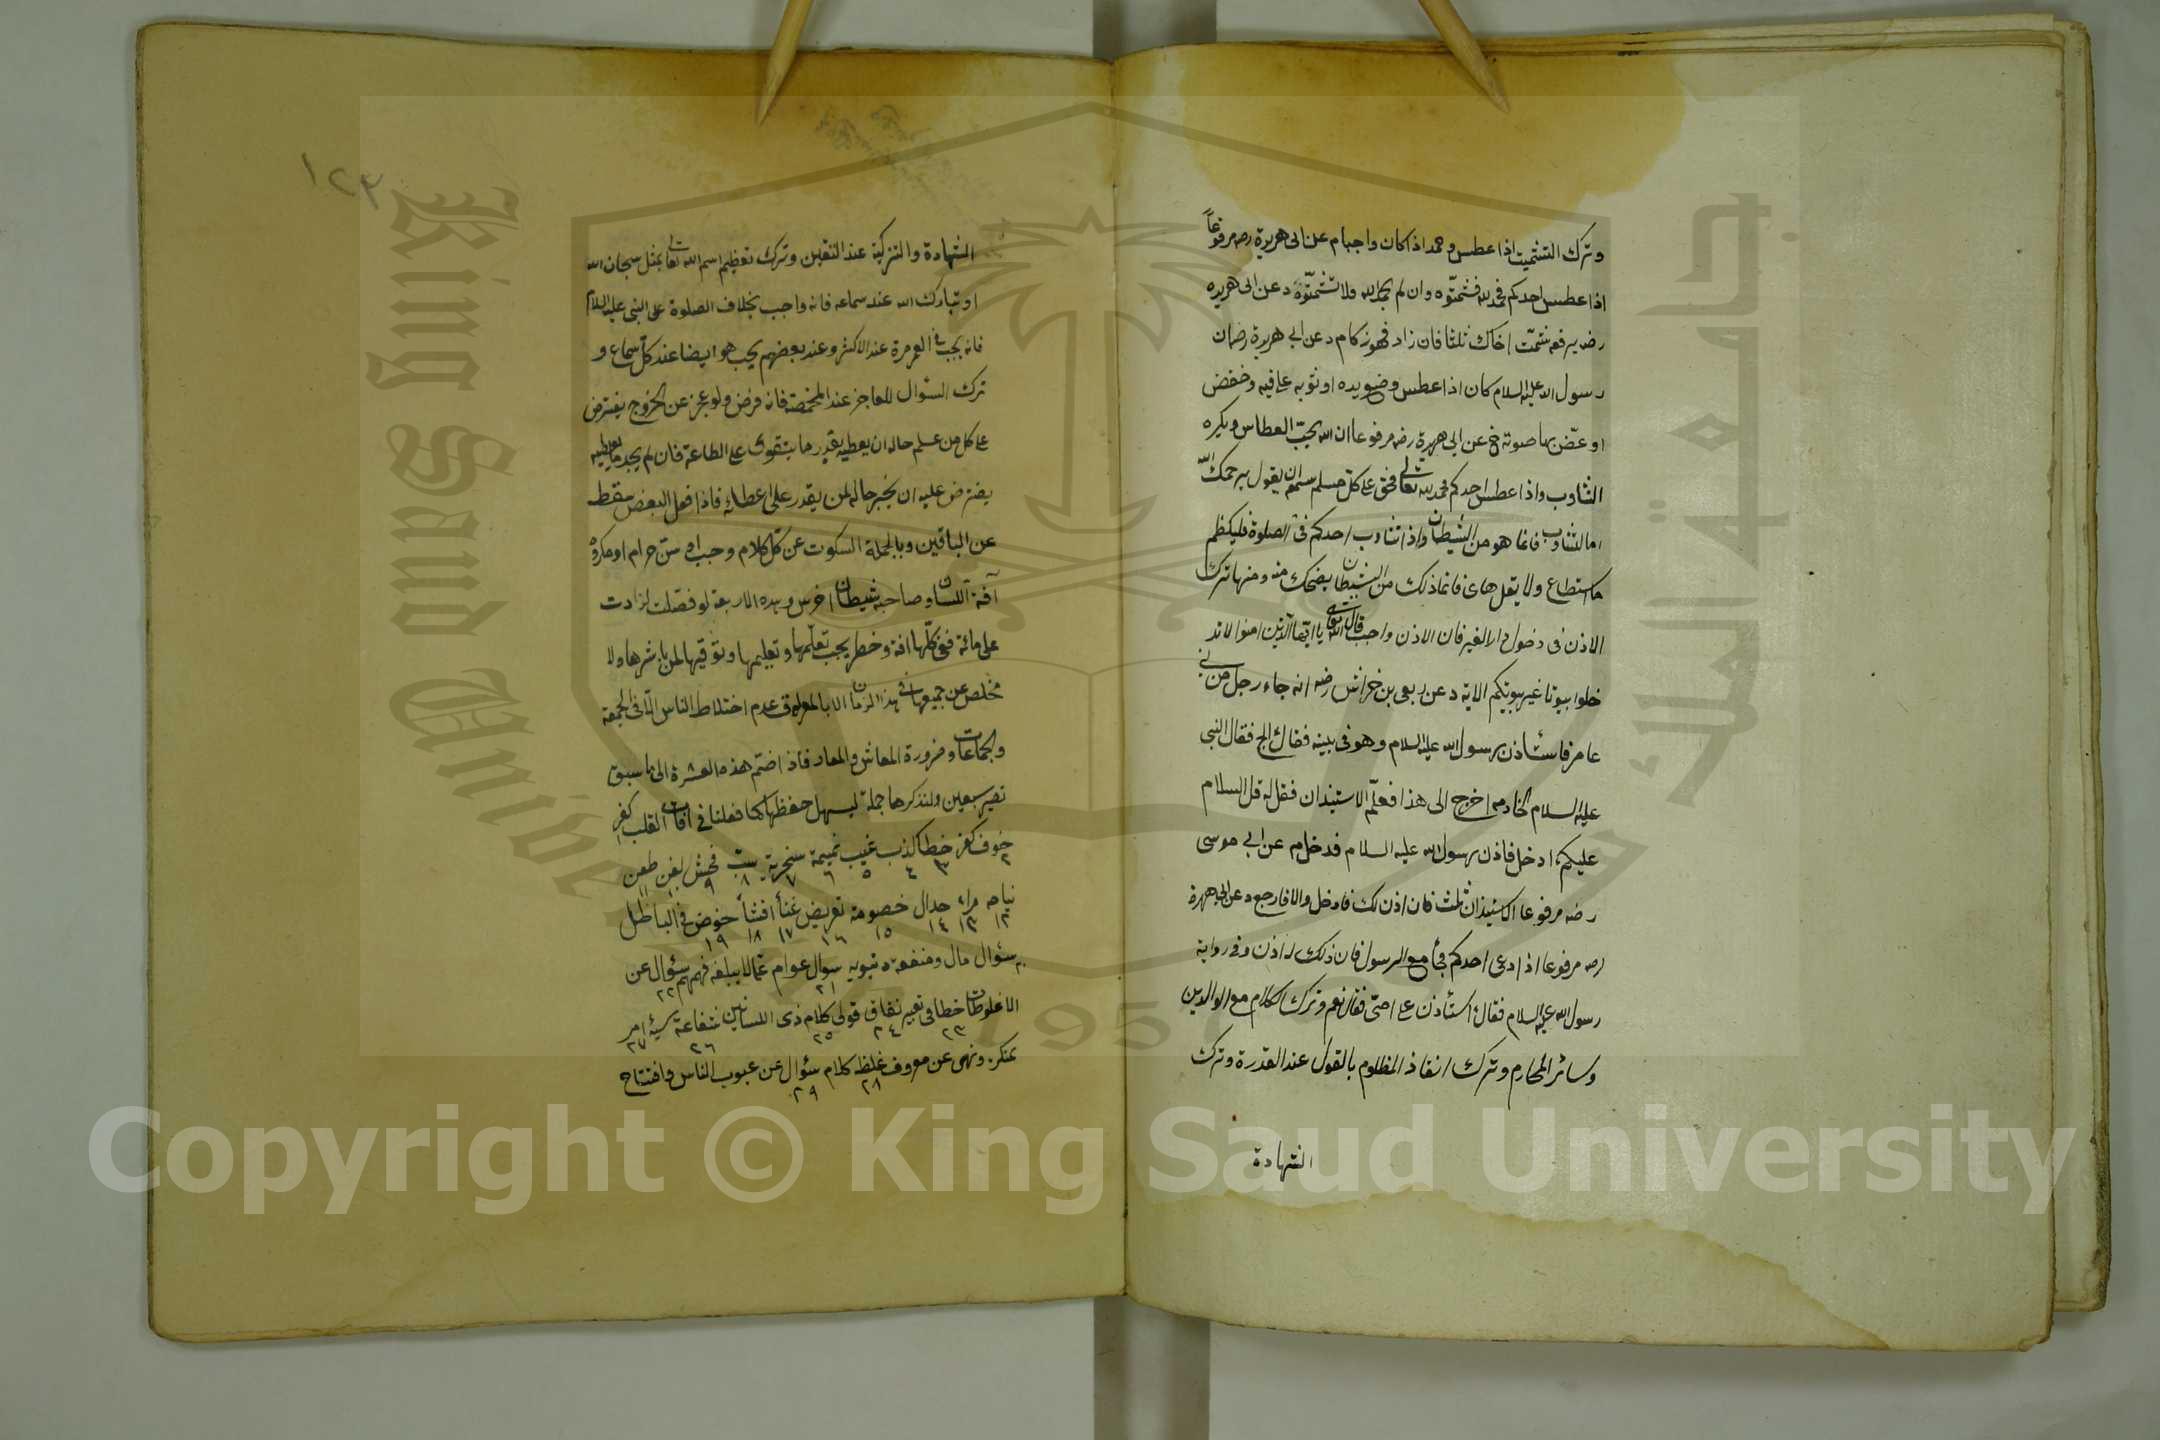 وترك التشميت اذا عطس وحمد اذا كان واجبا م عن ابى هريرة رضه مرفوعاً
اذا عطس احدكم فحمد لله فشمتّوه وان لم يحمد الله فلا تشمتّوه د عن ابى هريره
رضه يرفعه شمّت اخاك ثلثا فان زاد فهو زكام د عن ابى هريرة رضه ان
رسول الله عليه السلام كان اذا عطس وضع يده او ثوبه على فيه وخفض
او غضّ بها صوته خ عن ابى هريرة رضه مرفوعا ان الله يحبّ العطاس ويكره
التثاوب واذا عطس احدكم فحمد لله تعالى فحق على كل مسلم سمعه ان يقول يرحمك الله
اما التثاوب فانما هو من الشيطان واذا تثاوب احدكم فى الصلوة فليكظم
ما استطاع ولا يقل هاى فانما ذلك من الشيطان يضحك منه ومنها ترك
الاذن فى دخول دار الغير فان الاذن واجب قال الله تعالى يا ايّها الّذين امنوا لا تد
خلوا بيوتا غير بيوتكم الاية د عن ربعى بن خراش رضه انه جاء رجل من بنى
عامر فاستأذن رسول الله عليه السلام وهو فى بيته فقال الج فقال النبى
عليه السلام لخادمه اخرج الى هذا فعلّم الاستيذان فقل له قل السلام
عليكم ادخل فاذن رسول الله عليه السلام فدخل م عن ابى موسى
رضه مرفوعا الاستيذان ثلث فان اذن لك فادخل والا فارجع د عن ابى هريرة
رضه مرفوعا اذا دعى احدكم فجأ مع الرسول فان ذلك له اذن وفى رواية
رسول الله عليه السلام فقال استأذن على امّى فقال نعم وترك الكلام مع الوالدين
وسائر المحارم وترك انقاذ المظلوم بالقول عند القدرة وترك
الشهادة
١٢٣
الشهادة والتزكية عند التعين وترك تعظيم اسم الله تعا بمثل سبحان الله
او تبارك الله عند سماعه فانه واجب بخلاف الصلوة على النبى عليه السلام
فانه يجب فى العمر مرة عند الاكثر وعند بعضهم يجب هو ايضا عند كل سماع و
ترك السؤال للعاجز عند المخمصة فانه فرض ولو عجز عن الخروج يفترض
على كل من علم حاله ان يعطيه بقدر ما يتقوى على الطاعة فان لم يجد ما يعطيه
يفترض عليه ان يخبر حاله لمن يقدر على اعطائه فاذا فعل البعض سقط
عن الباقين وبالجملة السكوت عن كل كلام وجب او سنّ حرام او مكروه
آفة اللسان وصاحبه شيطان اخرس وهذه الاربعة لو فصّلت لزادت
على مائة ففى كلّها افة وخطر يجب تعلّمها وتعليمها وتوقيها لمن باشرها ولا
مخلص عن جميعها فى هذا الزمان الا بالعزلة وعدم اختلاط الناس الّا فى الجمعة
والجماعات وضرورة المعاش والمعاد فاذا ضمّ هذه العشرة الى ما سبق
تصير سبعين ولنذكرها جملة ليسهل حفظها كما فعلنا فى افات القلب كفر
١
خوف كفر خطأ كذب غيب نميمة سخرية سبّ فحش لعن طعن
٢ ٣ ٤ ٥ ٦ ٧ ٨ ٩ ١٠ ١١
نياحه مراء جدال خصومة تعريض غنأ افشأ خوض فى الباطل
١٢ ١٣ ١٤ ١٥ ١٦ ١٧ ١٨ ١٩
سؤال مال ومنفعة دنيويه سؤال عوام عمّا لا يبلغه فهمهم سؤال عن
٢٠ ٢١ ٢٢
الاغلوطات خطا فى تعبير نفاق قولى كلام ذى اللسانين شفاعة سيّة امر
٢٣ ٢٤ ٢٥ ٢٦ ٢٧
بمنكر ونهى عن معروف غلظ كلام سؤال عن عيوب الناس وافتتاح
٢٨ ٢٩
Copyright © King Saud University
King Saud University
1957